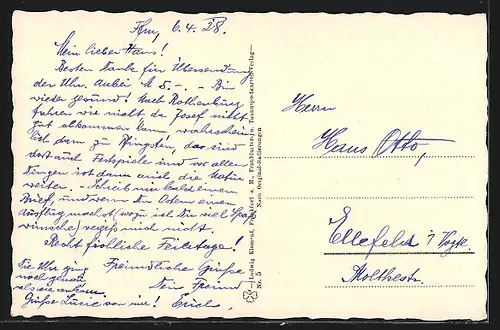 6.4.28.
Mein lieber Hans!
Besten Dank für Übersendung
der Uhr, anbei M 5.-. - Bin
wieder gesund! Nach Rothenburg
fahren wir nicht da Josef nicht
gut abkommen kann, wahrschein-
lich dann zu Pfingsten, das sind
dort auch Festspiele und vor allen
Dingen ist dann auch die Natur
weiter. - Schreib mir bald einen
Brief, und wenn Du Ostern einen
Ausflug machst (wozu ich Dir viel Spaß
wünsche) vergiß mich nicht.
Recht fröhliche Feiertage!
Die Uhr ging
noch genau
als sie ankam.
Freundliche Grüße
Dein Freund
Erich.
Grüße Lucie von mir!
Ludwig Klement, Frankfurt a. M.,
Nach Original-Radierungen
Nr. 5
Herrn
Hans Otto,
Ellefeld i/Vogtl.
Moltkestr.